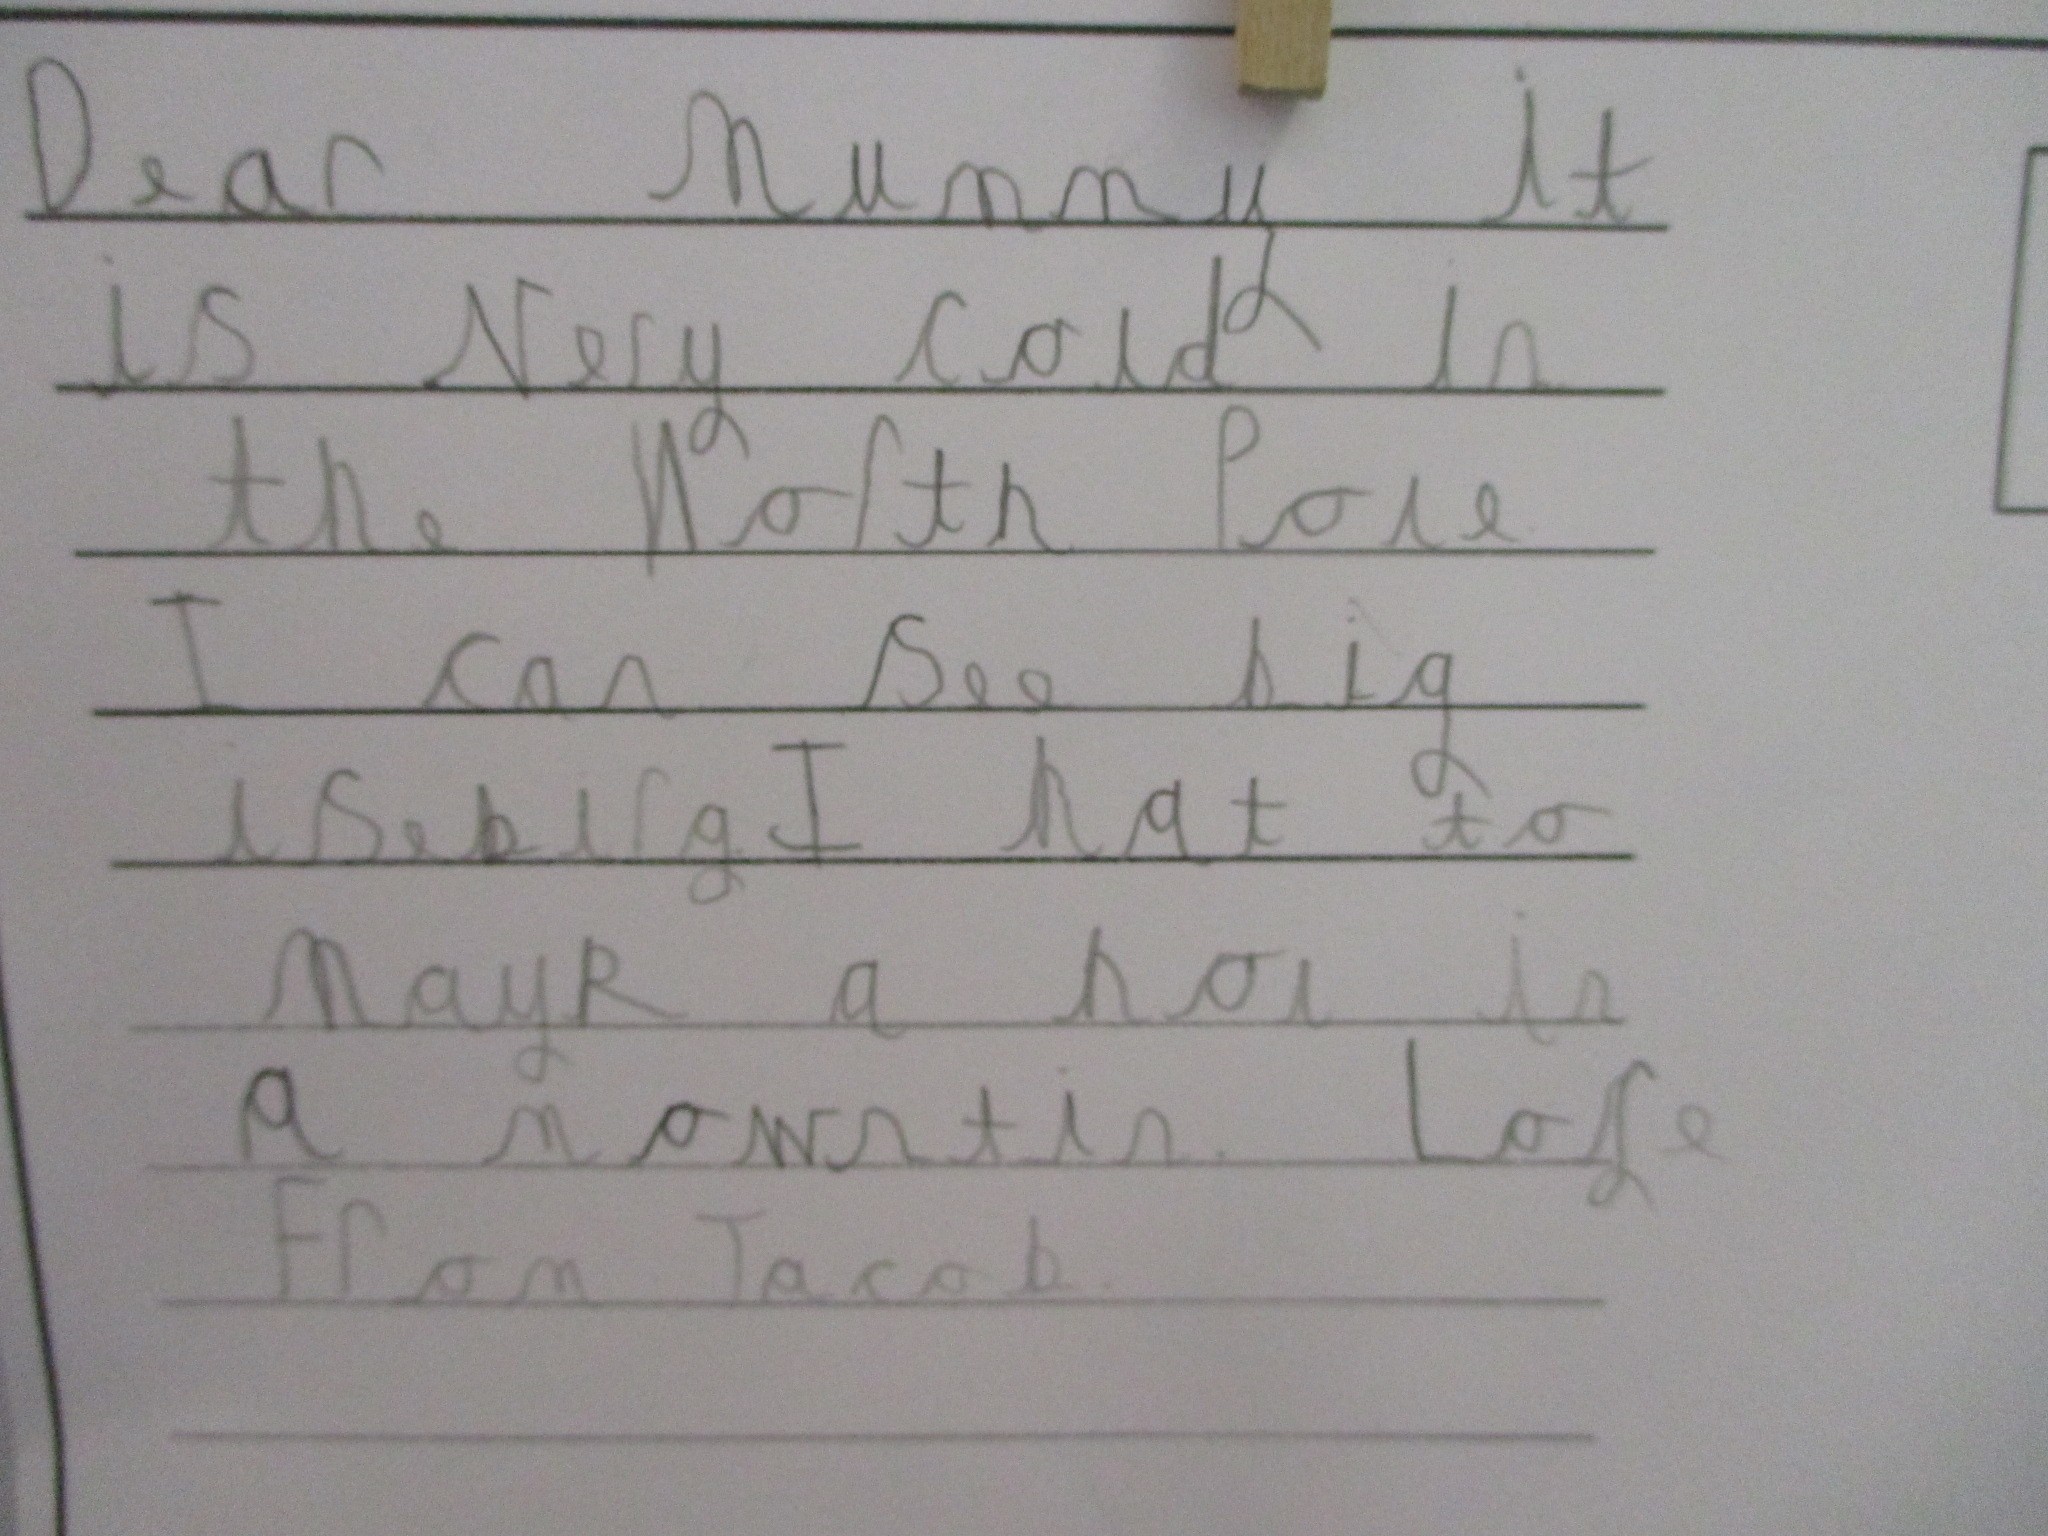 Dear Mummy it
is Very cold in
the North Pole
I can See big
iSebirg I hat to
mayk a hol in
a mowntin. Lofe
From Jacob.